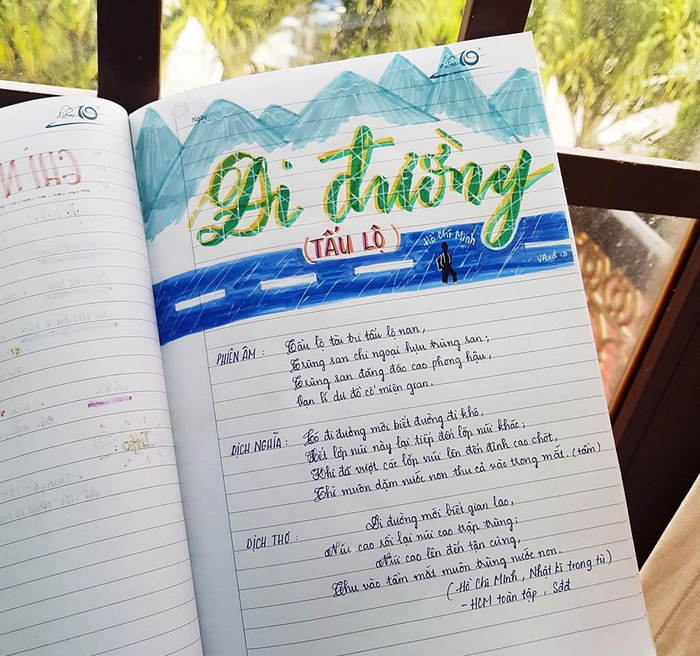 điểm 10
Ngày
Đi đường
(TẨU LỘ)
Hồ Chí Minh
PHIÊN ÂM : Tẩu lộ tài tri tẩu lộ nan,
Trùng san chi ngoại hựu trùng san;
Trùng san đăng đáo cao phong hậu,
Vạn lí dư đồ cố miện gian.
DỊCH NGHĨA : Có đi đường mới biết đường đi khó,
Hết lớp núi này lại tiếp đến lớp núi khác;
Khi đã vượt các lớp núi lên đến đỉnh cao chót,
Thì muôn dặm nước non thu cả vào trong mắt. (tầm)
DỊCH THƠ : Đi đường mới biết gian lao,
Núi cao rồi lại núi cao trập trùng;
Núi cao lên đến tận cùng,
Thu vào tầm mắt muôn trùng nước non.
(Hồ Chí Minh, Nhật kí trong tù)
- HCM toàn tập, Sđd